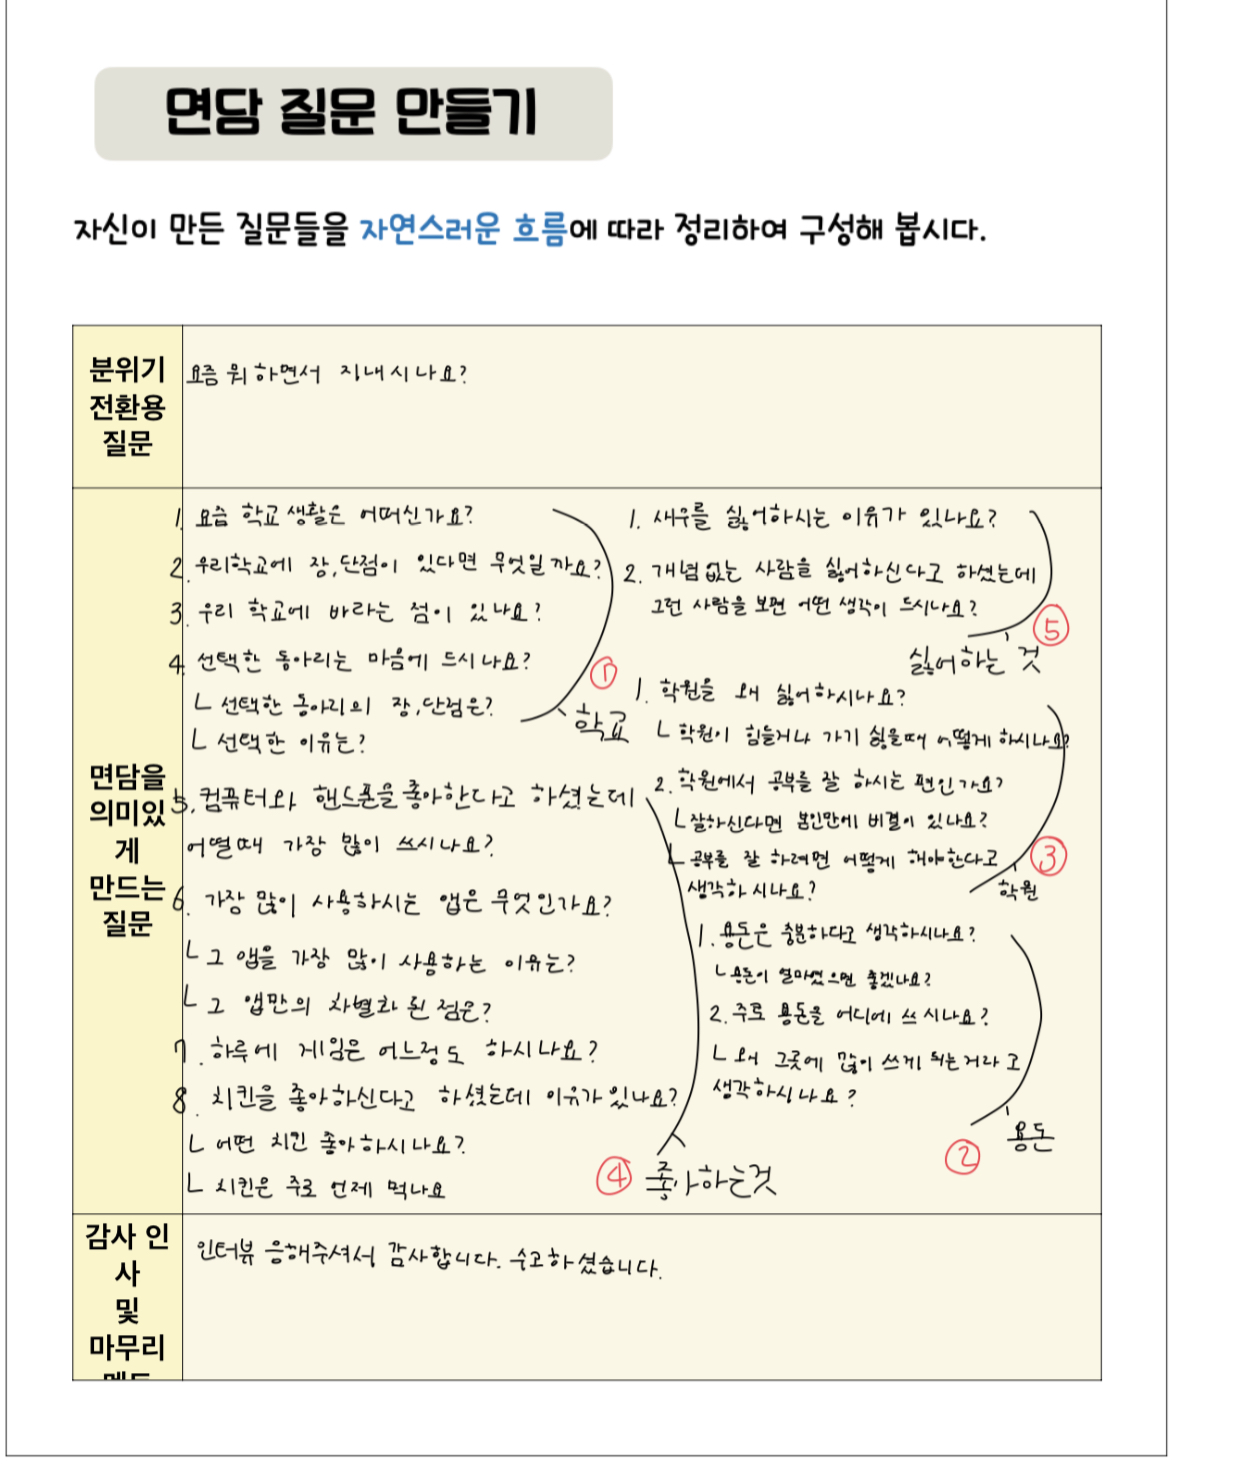 면담 질문 만들기
자신이 만든 질문들을 자연스러운 흐름에 따라 정리하여 구성해 봅시다.
분위기
전환용
질문
요즘 뭐 하면서 지내시나요?
면담을
의미있
게
만드는
질문
1. 요즘 학교 생활은 어떠신가요?
2. 우리학교에 장,단점이 있다면 무엇일까요?
3. 우리 학교에 바라는 점이 있나요?
4. 선택한 동아리는 마음에 드시나요?
ㄴ 선택한 동아리의 장,단점은?
ㄴ 선택한 이유는?
① 학교
5. 컴퓨터와 핸드폰을 좋아한다고 하셨는데
어떨때 가장 많이 쓰시나요?
6. 가장 많이 사용하시는 앱은 무엇인가요?
ㄴ 그 앱을 가장 많이 사용하는 이유는?
ㄴ 그 앱만의 차별화 된 점은?
7. 하루에 게임은 어느정도 하시나요?
8. 치킨을 좋아하신다고 하셨는데 이유가 있나요?
ㄴ 어떤 치킨 좋아하시나요?
ㄴ 치킨은 주로 언제 먹나요
④ 좋아하는것
1. 새우를 싫어하시는 이유가 있나요?
2. 개념 없는 사람을 싫어하신다고 하셨는데
그런 사람을 보면 어떤 생각이 드시나요?
⑤
싫어하는 것
1. 학원을 왜 싫어하시나요?
ㄴ 학원이 힘들거나 가기 싫을때 어떻게 하시나요?
2. 학원에서 공부를 잘 하시는 편인가요?
ㄴ잘하신다면 본인만에 비결이 있나요?
ㄴ 공부를 잘 하려면 어떻게 해야한다고
생각하시나요?
③
학원
1. 용돈은 충분하다고 생각하시나요?
ㄴ용돈이 얼마였으면 좋겠나요?
2. 주로 용돈을 어디에 쓰시나요?
ㄴ 왜 그곳에 많이 쓰게 되는거라고
생각하시나요?
용돈
②
감사 인
사
및
마무리
인터뷰 응해주셔서 감사합니다. 수고하셨습니다.